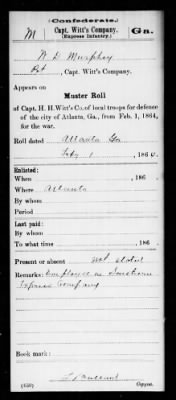 (Confederate.)
M Capt. Witt's Company. Ga.
(Express Infantry.)
W D Murphey
Pvt, Capt. Witt's Company.
Appears on
Muster Roll
of Capt. H. H. Witt's Co. of local troops for defence
of the city of Atlanta, Ga., from Feb. 1, 1864,
for the war.
Roll dated Atlanta Ga
Feby 1, 1864.
Enlisted:
When , 186 .
Where Atlanta
By whom
Period
Last paid:
By whom
To what time , 186 .
Present or absent not stated
Remarks: Employee in Southern
Express Company
Book mark:
(450) Copyist.